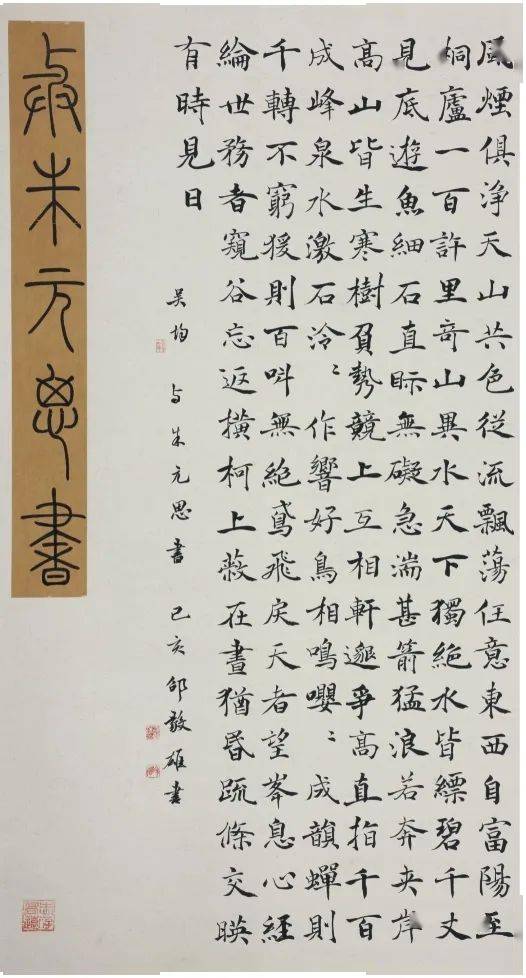 風煙俱淨天山共色從流飄蕩任意東西自富陽至
桐廬一百許里奇山異水天下獨絕水皆縹碧千丈
見底遊魚細石直眎無礙急湍甚箭猛浪若奔夾岸
髙山皆生寒樹負勢競上互相軒邈爭髙直指千百
成峰泉水激石泠〻作響好鳥相鳴嚶〻成韻蟬則
千轉不窮猨則百呌無絕鳶飛戾天者望峯息心經
綸世務者窺谷忘返橫柯上蔽在晝猶昏疏條交暎
有時見日
吳均 与朱元思書 己亥 邵雄書
与朱元思書